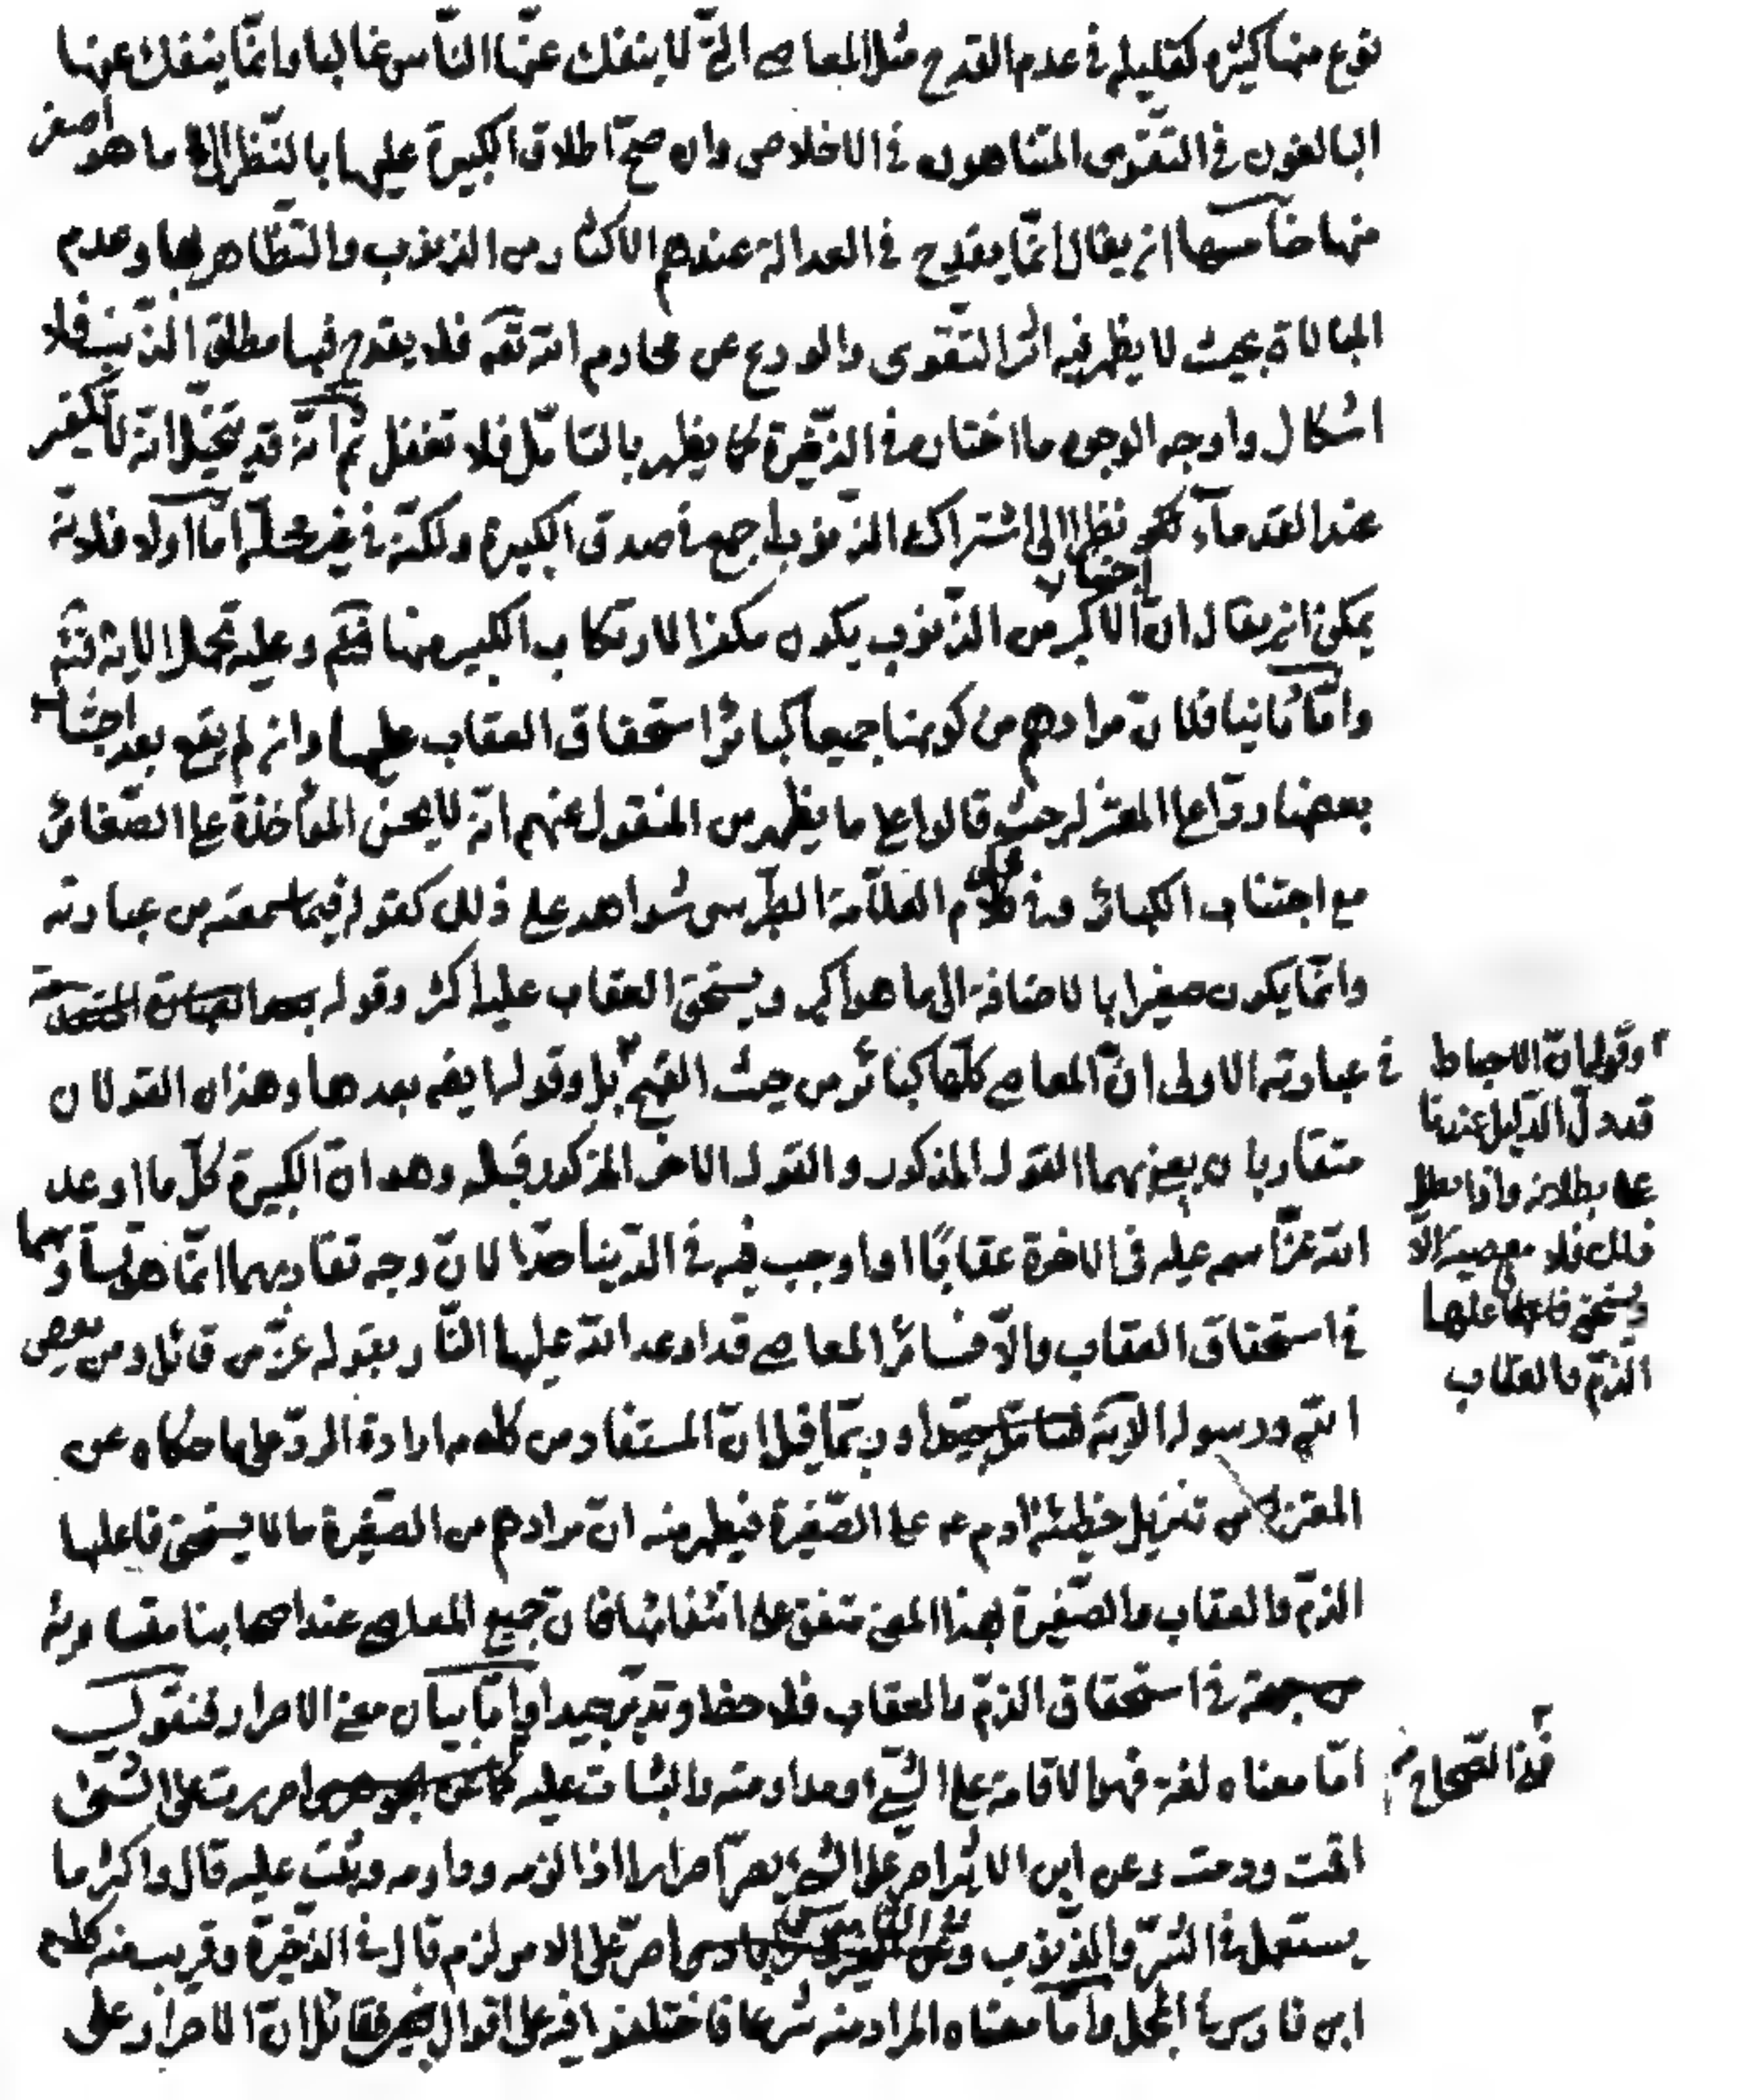 نوع منها كثيره كقليله في عدم القدح مثل المعاصي التي لا ينفك عنها الناس غالبا وانما ينفك عنها
البالغون في التقوى المتناهون في الاخلاص وان صح اطلاق الكبيرة عليها بالنظر الى ما هو اصغر
منها خامسها ان يقال انما يقدح في العدالة عندهم الاكثار من الذنوب والتظاهر بها وعدم
المبالاة بحيث لا يظهر فيه اثر التقوى والورع عن محارم الله تعه فلا يقدح فيها مطلق الذنب فلا
اشكال واوجه الوجوه ما اختاره في الذخيرة كما يظهر بالتامل فلا تغفل ثم انه قد يتخيل انه لا تكفير
عند القدماء نظرا الى اشتراك الذنوب اجمع في صدق الكبيرة ولكنه في غير محله اما اولا فلانه
يمكن ان يقال ان اجتناب الاكبر من الذنوب يكون مكفرا لارتكاب الكبير منها وعليه تحمل الاية
واما ثانيا فلان مرادهم من كونها جميعا كبائر استحقاق العقاب عليها وان لم يقع بعد اجتناب
بعضها ردا على المعتزلة حيث قالوا على ما يظهر من المنقول عنهم انه لا يحسن المؤاخذة على الصغائر
مع اجتناب الكبائر وفي كلام العلامة الطبرسي شواهد على ذلك كقوله فيما سمعته من عبارته
وانما يكون صغيرا بالاضافة الى ما هو اكبر ويستحق العقاب عليه اكثر وقوله
في عبارته الاولى ان المعاصي كلها كبائر من حيث القبح بل وقوله ايضه بعدها وهذان القولان
متقاربان يعني بهما القول المذكور والقول الاخر المذكور قبله وهو ان الكبيرة كل ما اوعد
الله عز اسمه عليه في الاخرة عقابا او اوجب فيه في الدنيا حدا لان وجه تقاربهما انما هو تساويهما
في استحقاق العقاب والا فسائر المعاصي قد اوعد الله عليها النار بقوله عز من قائل ومن يعص
الله ورسوله الآية وربما قيل ان المستفاد من كلامه ارادة الرد على ما حكاه عن
المعتزلة من تنزيل خطيئة ادم ع على الصغيرة فيظهر منه ان مرادهم من الصغيرة ما لا يستحق فاعلها
الذم والعقاب والصغيرة بهذا المعنى متفق على انتفائها فان جميع المعاصي عندا صحابنا متساوية
من جهة في استحقاق الذم والعقاب فلاحظ وتدبر جيدا واما بيان معنى الاصرار فنقول
اما معناه لغة فهو الاقامة على الشيء او مداومته والثبات عليه اصررت على الشيء
اقمت ودمت وعن ابن الاثير اصر على الشيء يصر اصرارا اذا لزمه وداومه وثبت عليه قال واكثر ما
يستعمل في الشر والذنوب وفي القاموس اصر على الامر لزم قال في الذخيرة وقريب منه كلام
ابن فارس في المجمل واما معناه المراد منه شرعا فاختلفوا فيه على اقوال فمن قائل ان الاصرار على
وقوله ان الاحباط
قد دل الدليل عندنا
على بطلانه واذا بطل
ذلك فلا معصية الا
ويستحق فاعلها عليها
الذم والعقاب
ففي الصحاح